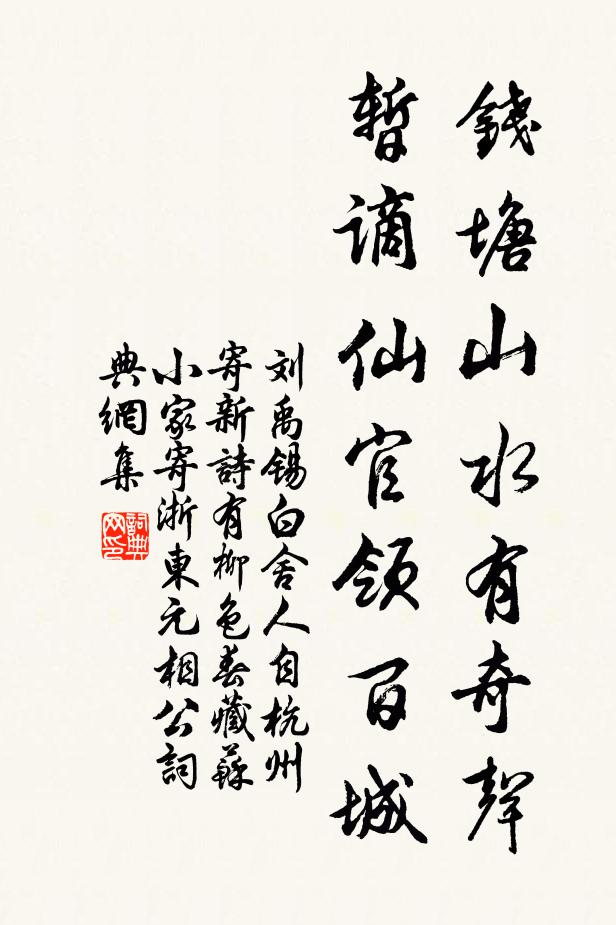 錢塘山水有奇聲
暫謫仙官領百城
刘禹锡白舍人自杭州
寄新詩有柳色春藏蘇
小家寄浙東元相公詞
典網集
詞典
网印